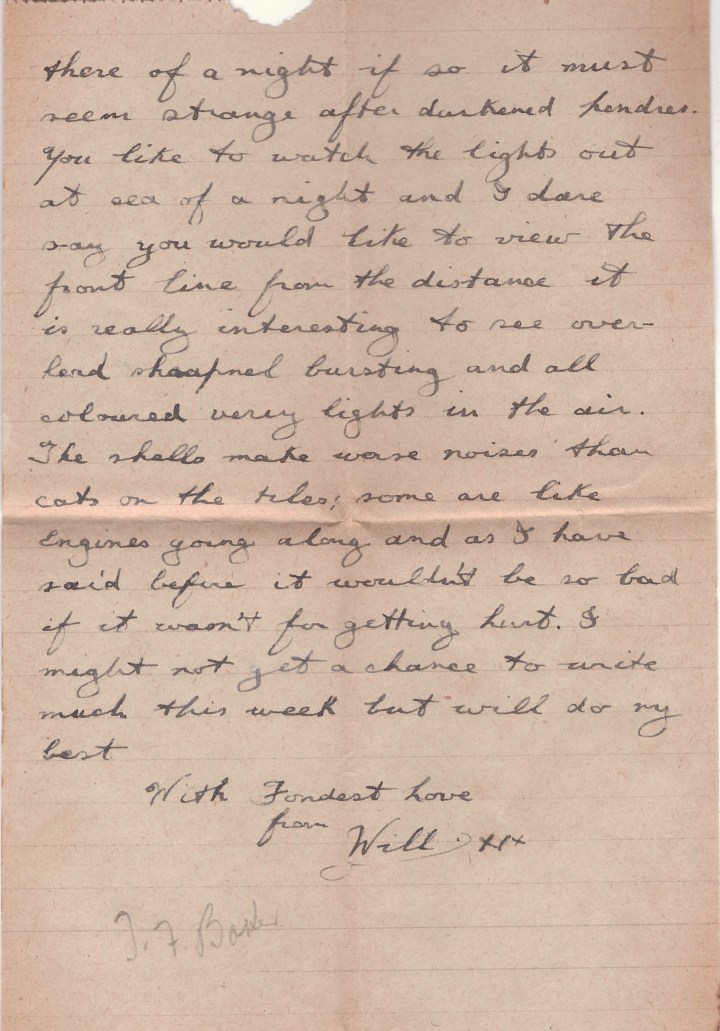 there of a night if so it must
seem strange after darkened hendres.
You like to watch the lights out
at sea of a night and I dare
say you would like to view the
front line from the distance it
is really interesting to see over-
lead shrapnel bursting and all
coloured verey lights in the air.
The shells make worse noises than
cats on the tiles; some are like
Engines going along and as I have
said before it wouldn't be so bad
if it wasn't for getting hurt. I
might not get a chance to write
much this week but will do my
best
With Fondest Love
from
Will. xxx
Baker